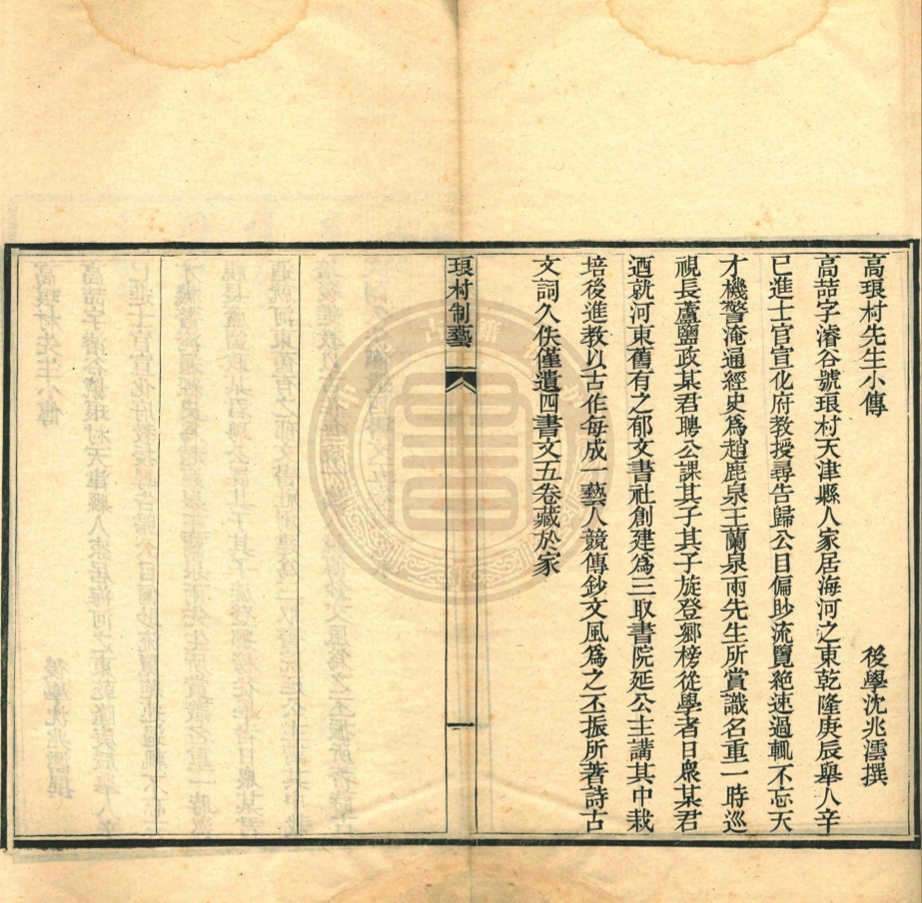 高琅村先生小傳
後學沈兆澐撰
高喆字濬谷號琅村天津縣人家居海河之東乾隆庚辰舉人辛
巳進士官宣化府教授尋告歸公目偏眇流覽絕速過輒不忘天
才機警淹通經史爲趙鹿泉王蘭泉兩先生所賞識名重一時巡
視長蘆鹽政某君聘公課其子其子旋登鄉榜從學者日衆某君
迺就河東舊有之郁文書社創建爲三取書院延公主講其中栽
培後進教以古作每成一藝人競傳鈔文風爲之丕振所著詩古
文詞久佚僅遺四書文五卷藏於家
琅村制藝